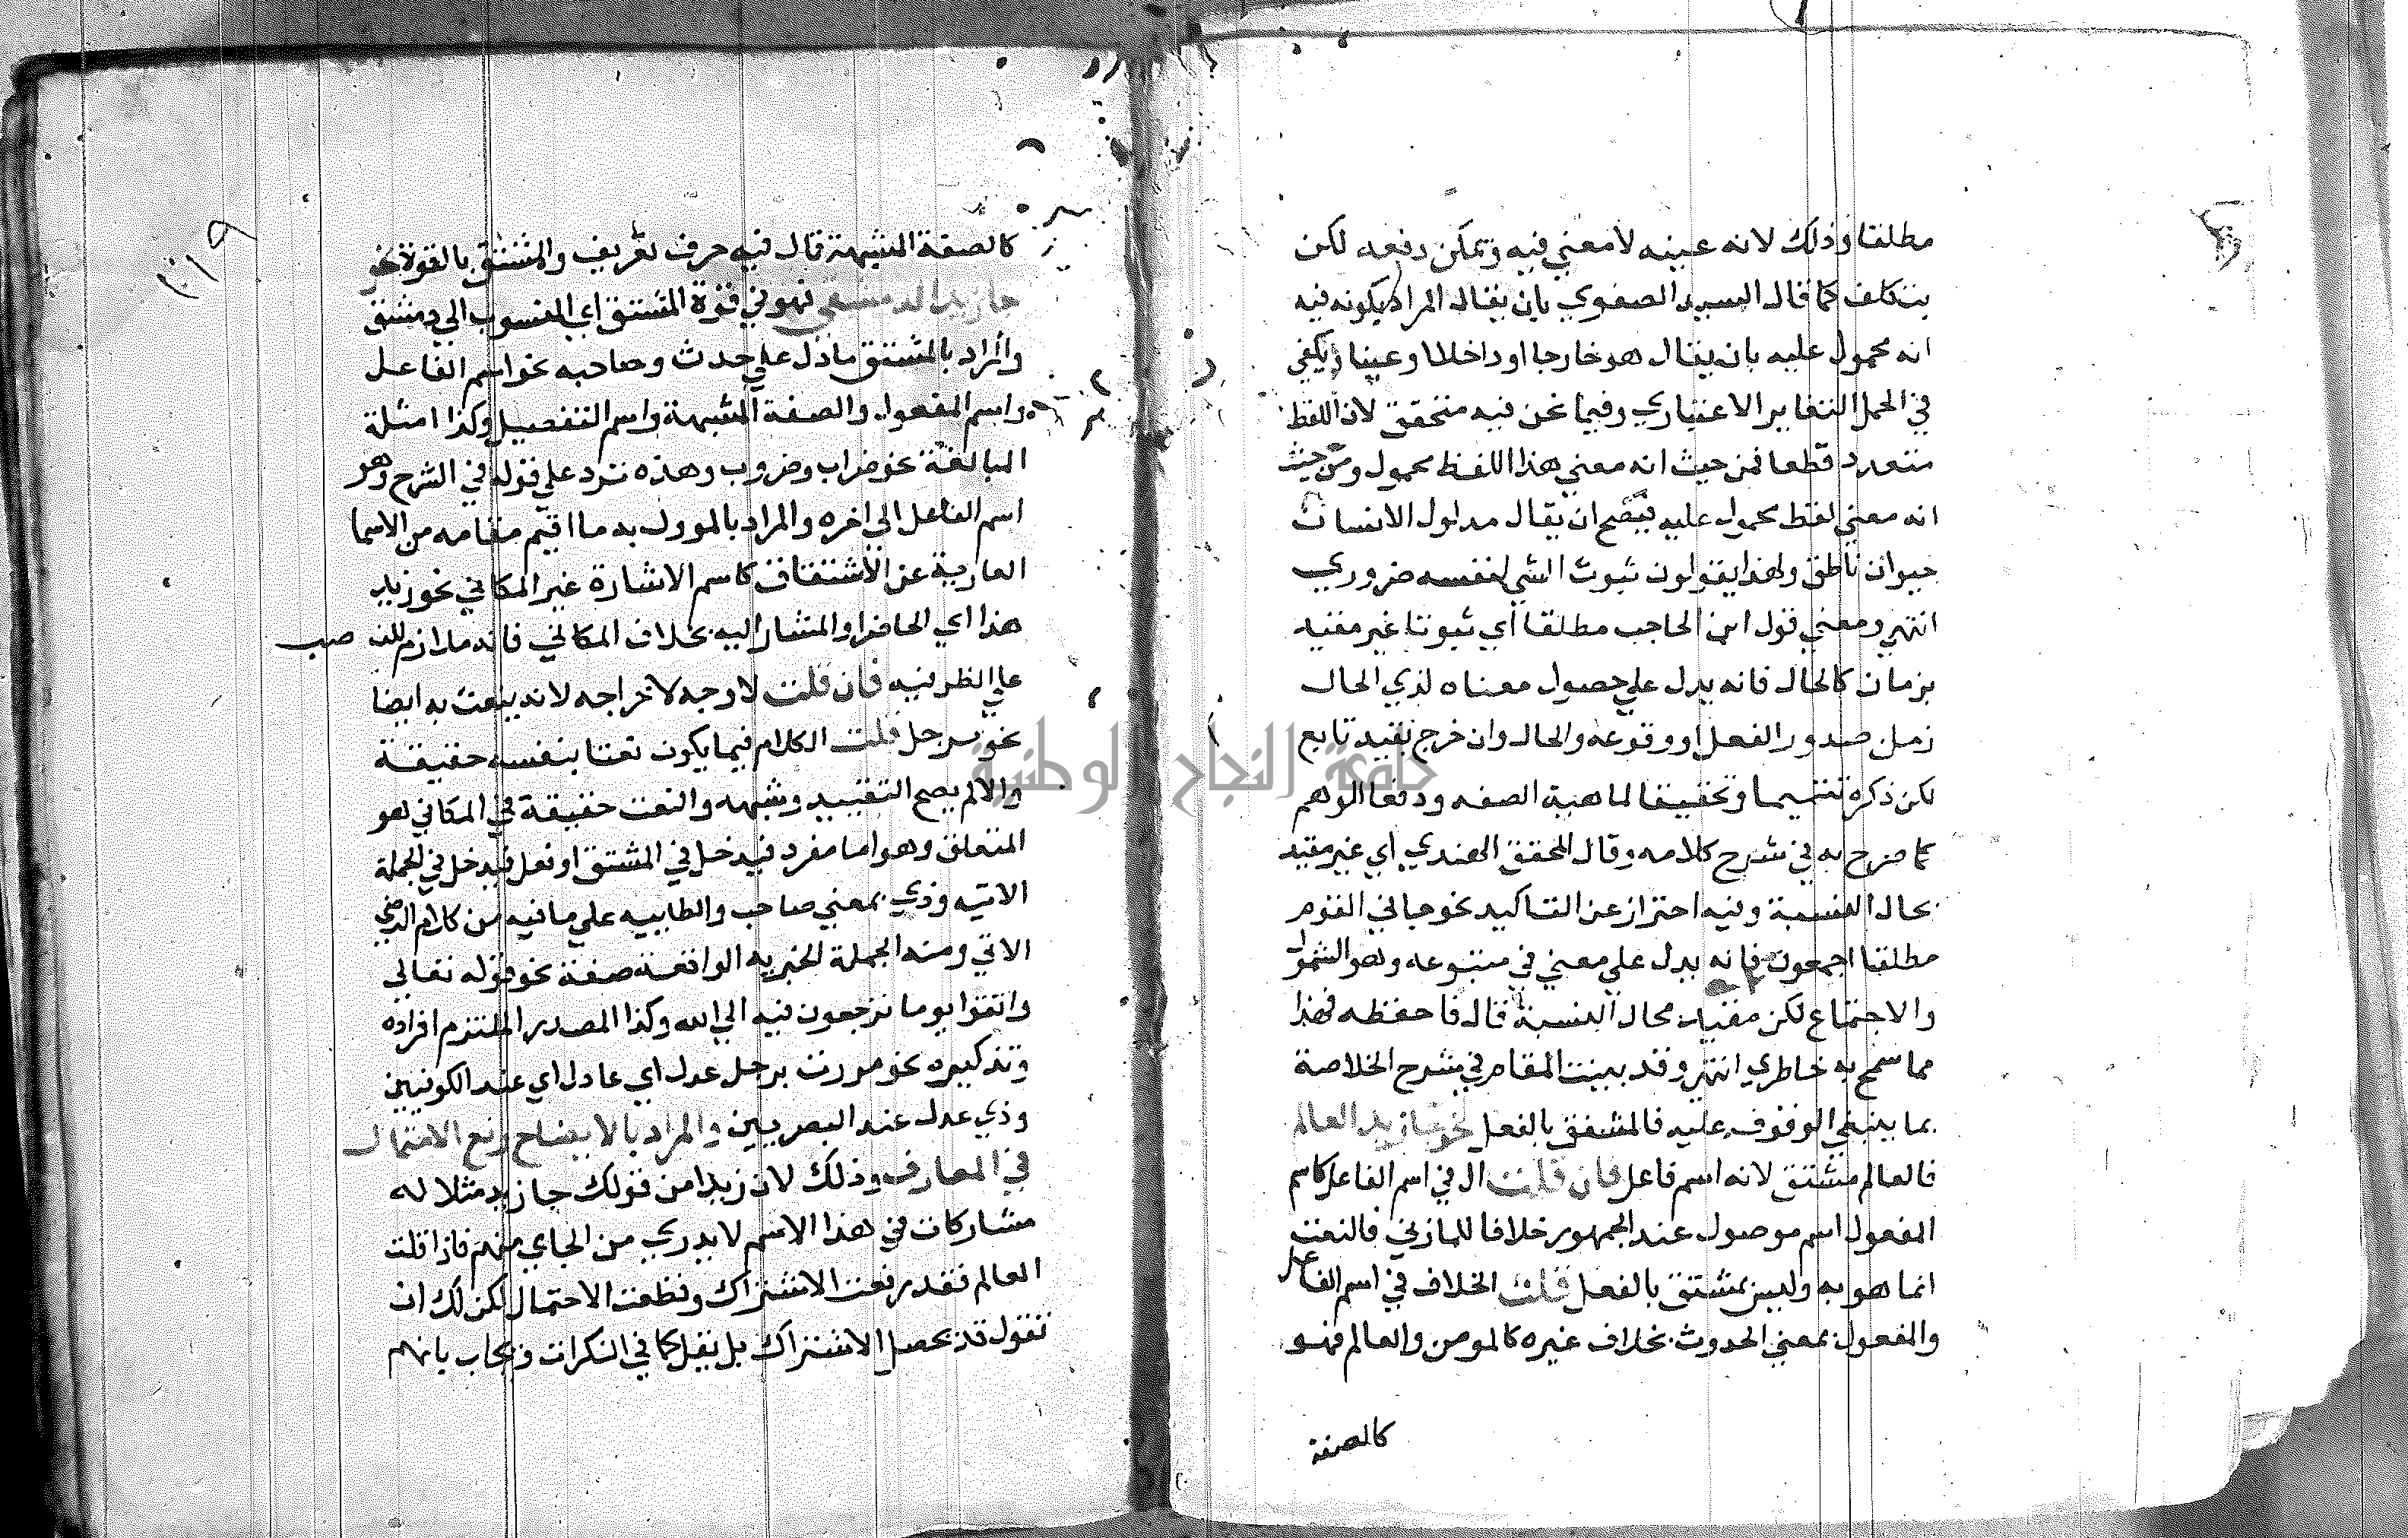 مطلقا وذلك لانه عينه لا معني فيه ويمكن دفعه لكن
يتكلف كما قال السيد الصفوي بان يقال المراد بكونه فيه
انه محمول عليه بان يقال هو خارجا او داخلا وعينا ويكفي
في الحمل التغاير الاعتباري وفيما نحن فيه متحقق لان اللفظ
متعدد قطعا فمن حيث انه معني هذا اللفظ محمول ومن حيث
انه معني لفظ محمول عليه فيصح ان يقال مدلول الانسان
حيوان ناطق ولهذا يقولون ثبوت الشي لنفسه ضروري
انتهي ومعني قول ابن الحاجب مطلقا اي ثبوتا غير مقيد
بزمان كالحال فانه يدل علي حصول معناه لذي الحال
زمن صدور الفعل او وقوعه والحال وان خرج بقيد تابع
لكن ذكره تتميما وتحقيقا لماهية الصفه ودفعا لوهم
كما صرح به في شرح كلامه وقال المحقق الهندي اي غير مقيد
بحال النسبة وفيه احتراز عن التاكيد نحو جاني القوم
مطلقا اجمعون فانه يدل علي معني في متبوعه وهو الشمول
والاجتماع لكن مقيد بحال النسبة قال فاحفظه فهذا
مما سمح به خاطري انتهي وقد بينت المقام في شرح الخلاصة
بما ينبغي الوقوف عليه فالمشتق بالفعل نحو جا زيد العالم
فالعالم مشتق لانه اسم فاعل فان قلت ال في اسم الفاعل كاسم
المفعول اسم موصول عند الجمهور خلافا للمازني فالنعت
انما هو به وليس بمشتق بالفعل قلت الخلاف في اسم الفاعل
والمفعول بمعني الحدوث بخلاف غيره كالمومن والعالم فهو
كالصفة
كالصفة المشبهة قال فيه حرف تعريف والمشتق بالقوة نحو
جا زيد الدمشقي فهو في قوة المشتق اي المنسوب الي دمشق
والمراد بالمشتق ما دل علي حدث وصاحبه نحو اسم الفاعل
واسم المفعول والصفة المشبهة واسم التفضيل وكذا امثلة
المبالغة نحو ضراب وضروب وهذه ترد علي قوله في الشرح وهو
اسم الفاعل الي اخره والمراد بالموول به ما اقيم مقامه من الاسما
العارية عن الاشتقاق كاسم الاشارة غير المكاني نحو زيد
هذا اي الحاضر او المشار اليه بخلاف المكاني فانه ملازم للنصب
علي الظرفيه فان قلت لا وجه لاخراجه لانه ينعت به ايضا
نحو برجل قلت الكلام فيما يكون نعتا بنفسه حقيقة
والا لم يصح التقييد وشبهه والنعت حقيقة في المكاني هو
المتعلق وهو اما مفرد فيدخل في المشتق او فعل فيدخل في الجملة
الاتيه وذي بمعني صاحب والطاييه علي ما فيه من كلام الرضي
الاتي ومنه الجملة الخبريه الواقعة صفة نحو قوله تعالي
واتقوا يوما ترجعون فيه الي الله وكذا المصدر الملتزم افراده
وتذكيره نحو مررت برجل عدل اي عادل اي عند الكوفيين
وذي عدل عند البصريين والمراد بالايضاح رفع الاحتمال
في المعارف وذلك لان زيدا من قولك جا زيد مثلا له
مشاركات في هذا الاسم لا يدري من الجاي منهم فاذا قلت
العالم فقد رفعت الاشتراك وقطعت الاحتمال لكن لك ان
تقول قد يحصل الاشتراك بل تقل كما في النكرات ويجاب بانهم
جامعة النجاح الوطنية